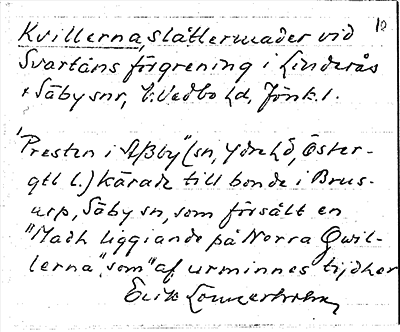 10
Kvillerna, slåttermader vid
Svartåns förgrening i Linderås
+ Säby snr, V. Vedbo hd, Jönk. l.
"Presten i Aßby" (sn, Ydre hd, Öster-
gtl l.) kärade till bonde i Brus-
arp, Säby sn, som försålt en
"Madh liggiande på Norra Qwil-
lerna", som "af urminnes tijdher
Erik